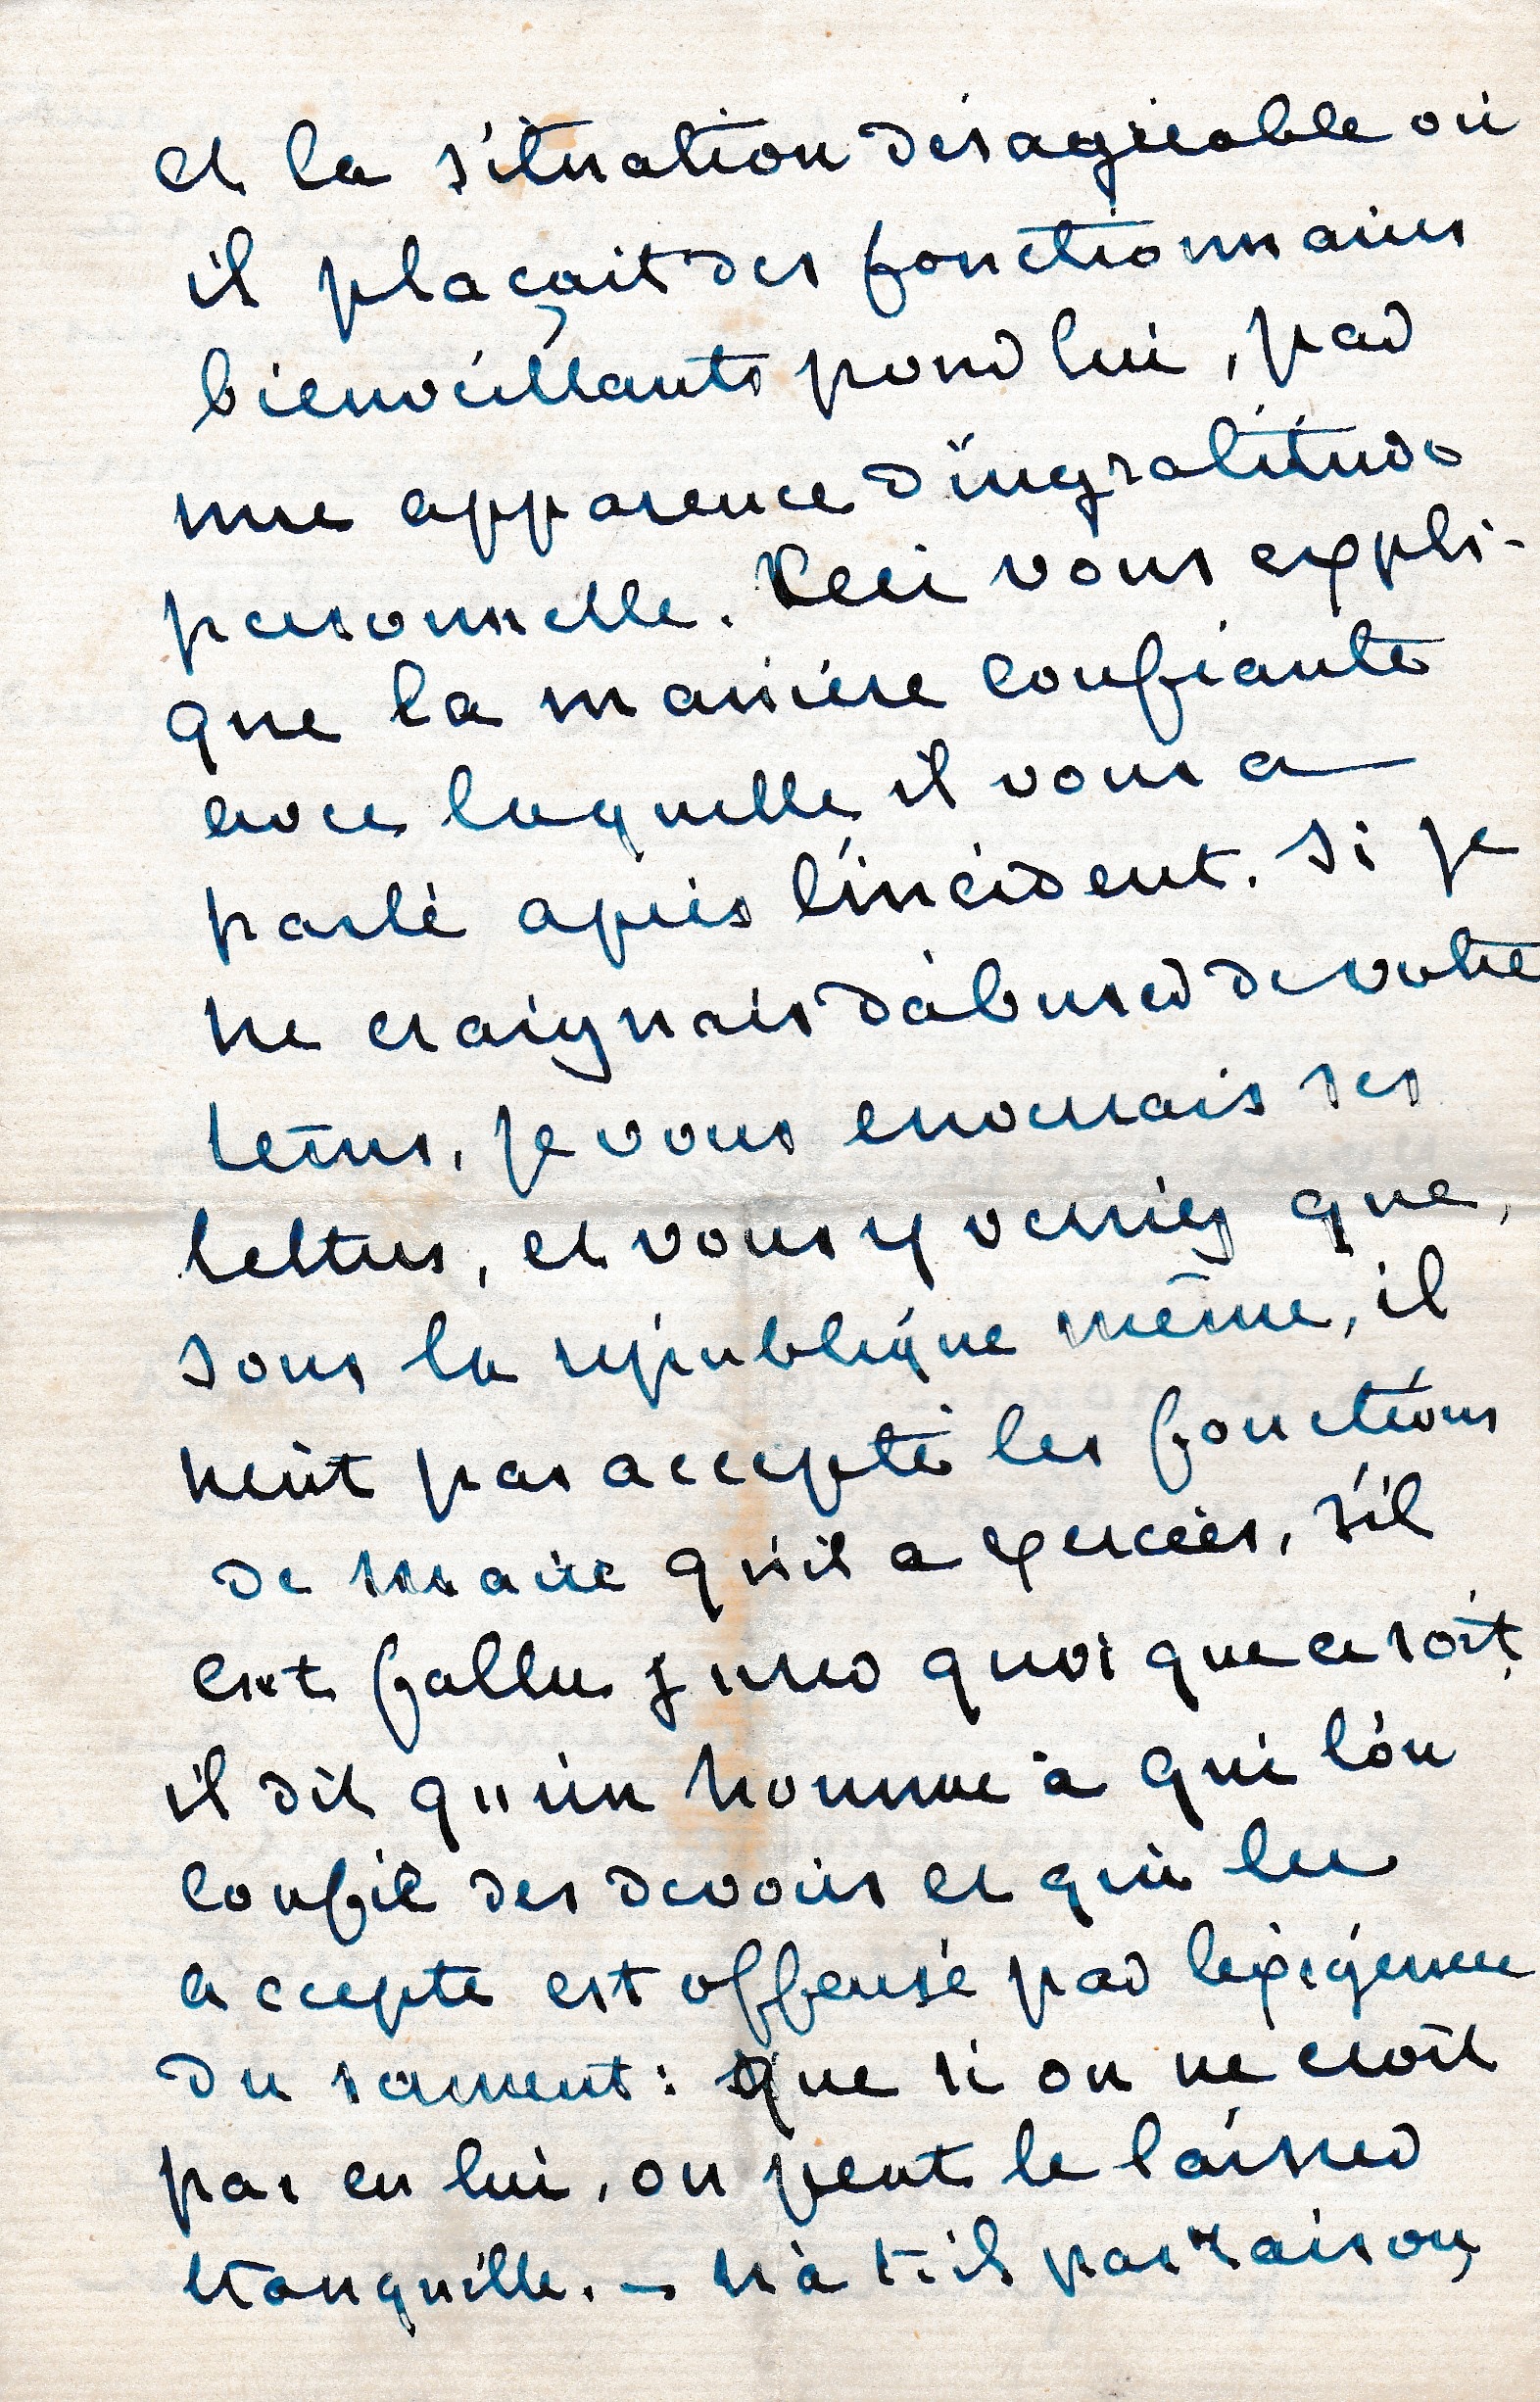 et la situation désagréable où
il plaçait des fonctionnaires
bienveillants pour lui, par
une apparence d'ingratitude
personnelle. Ceci vous expli-
que la manière confiante
avec laquelle il vous a
parlé après l'incident. Si je
ne craignais d'abuser de votre
tems, je vous enverrais ses
lettres, et vous y verriez que,
sous la république même, il
n'eut pas accepté les fonctions
de maire qu'il a exercées, s'il
eut fallu jurer quoi que ce soit,
il dit qu'un homme à qui l'on
confie des devoirs et qui les
accepte est offensé par l'exigence
du serment: que si on ne croit
pas en lui, on peut le laisser
tranquille. — N'a t-il pas raison,